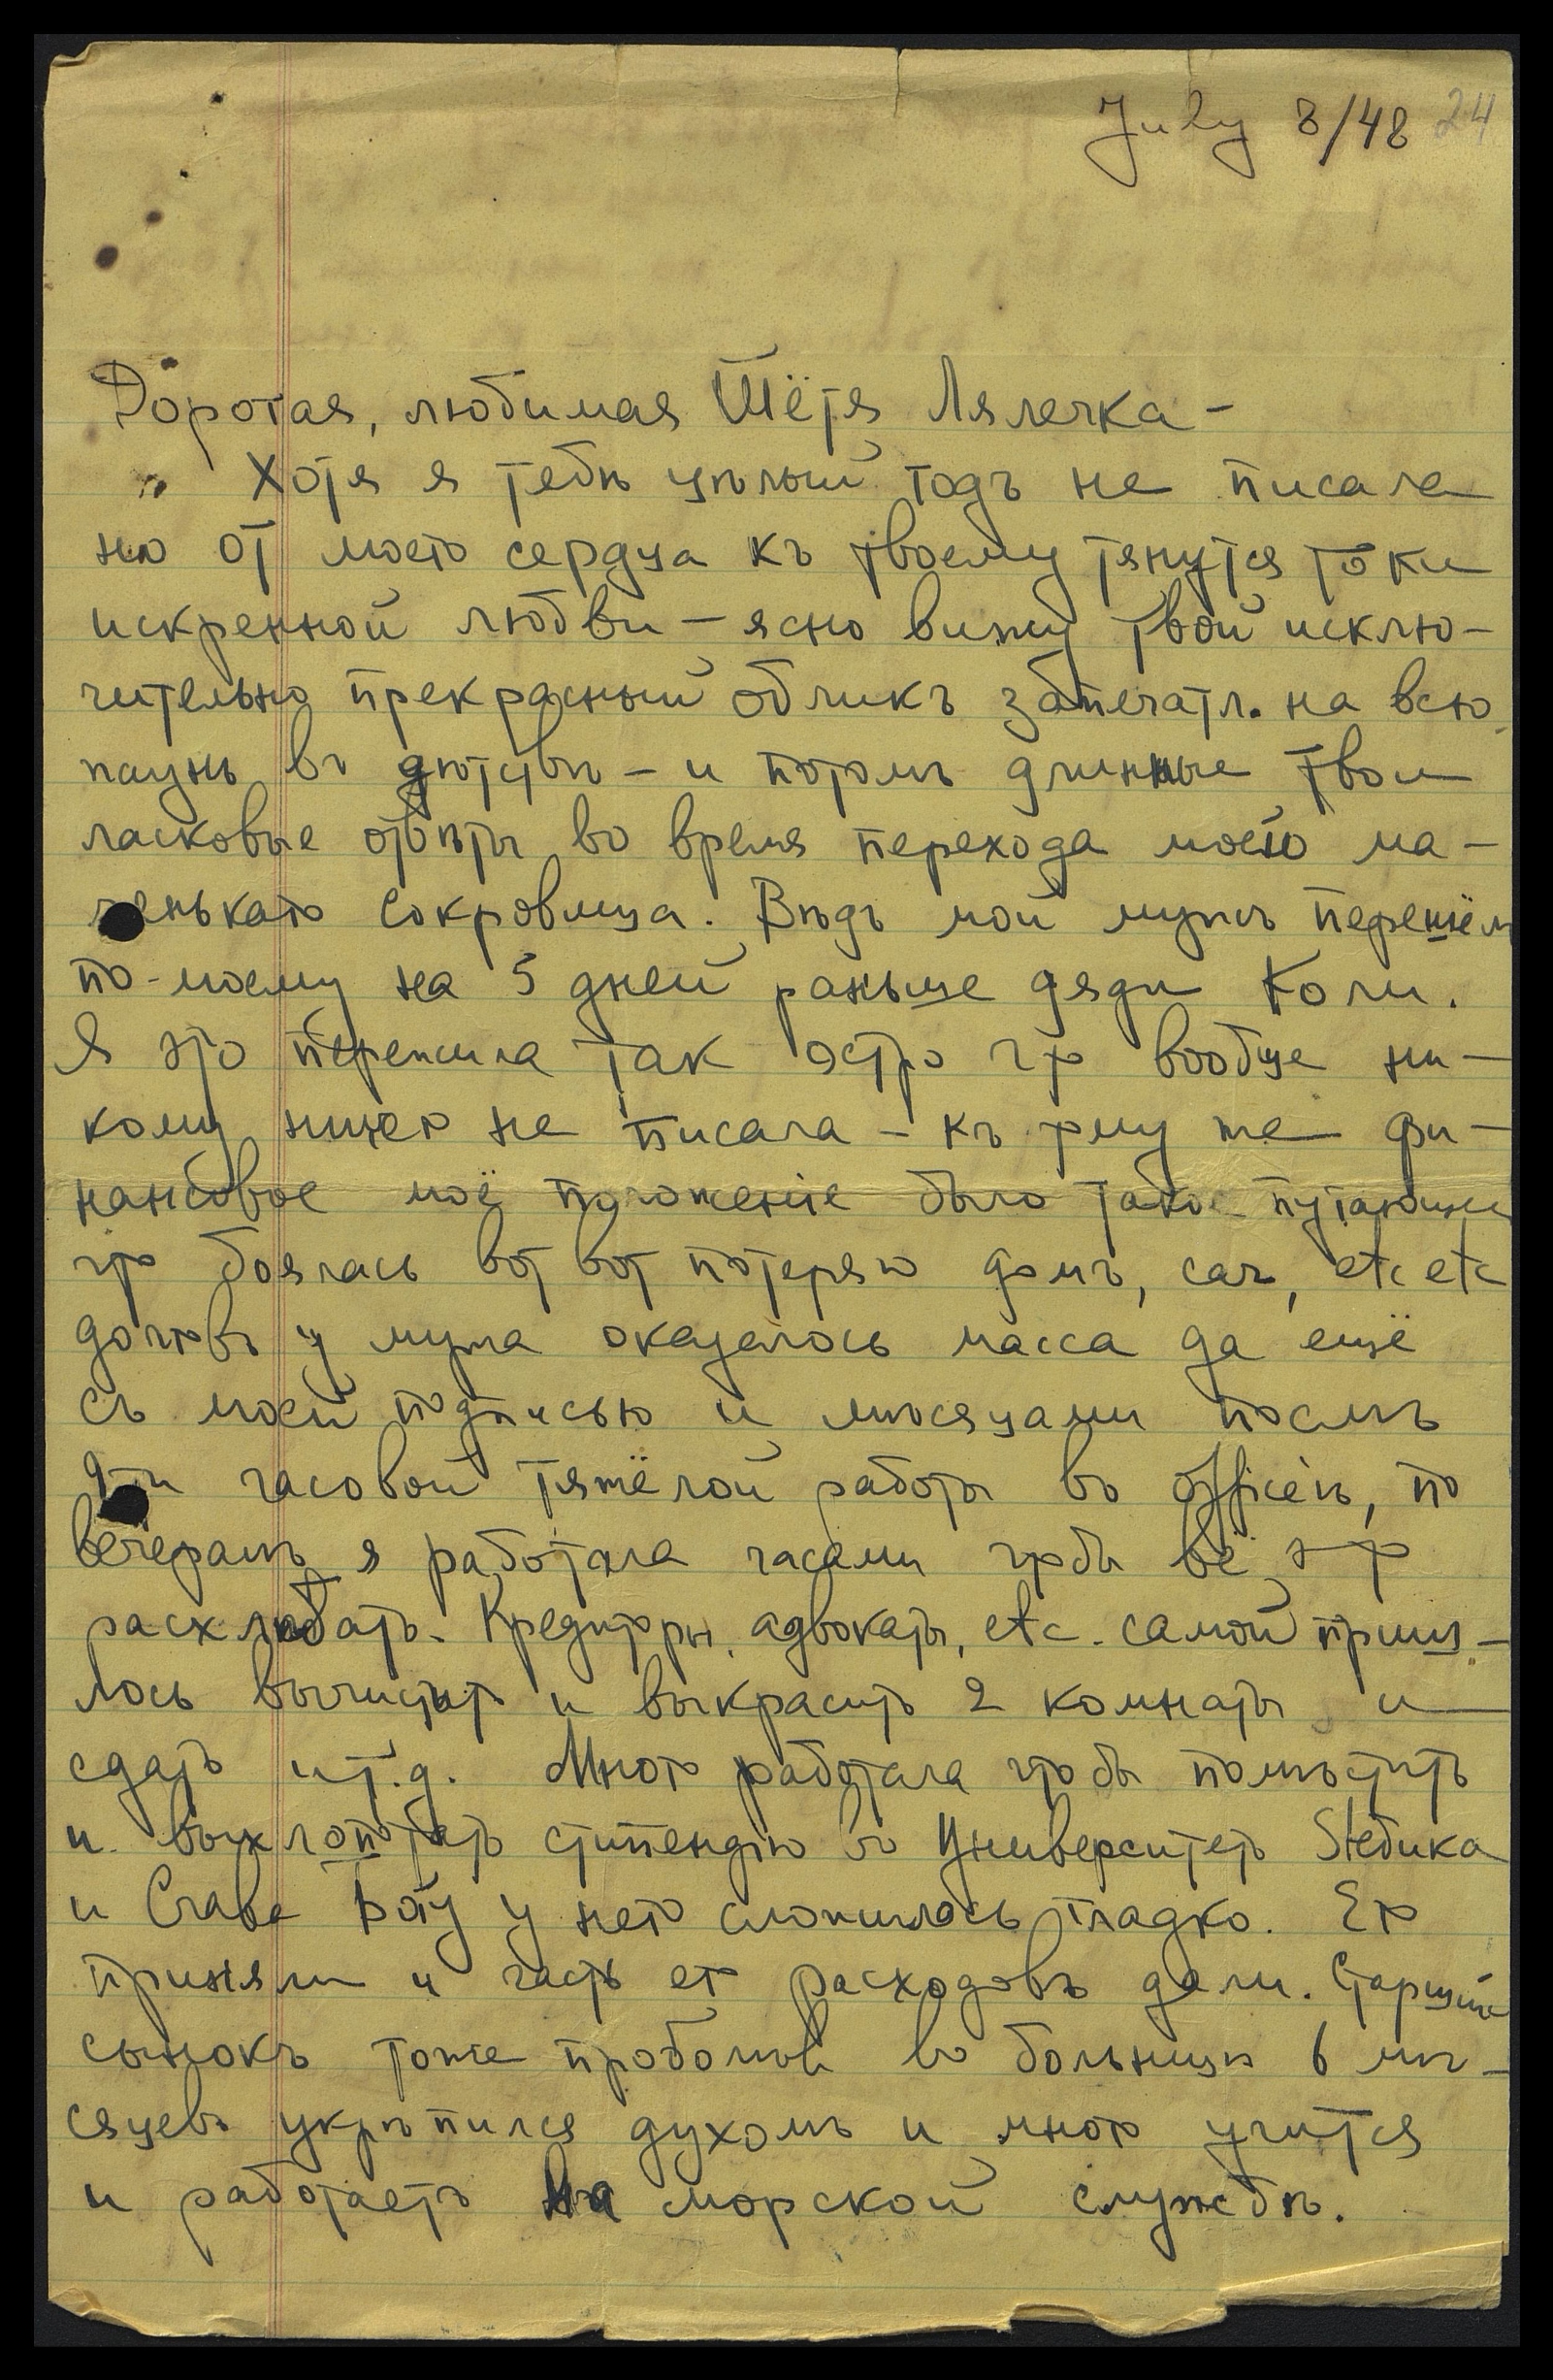 July 8/48 24
Дорогая, любимая Тётя Лялечка -
Хотя я тебѣ цѣлый годъ не писала
но от моего сердца къ твоему тянутся токи
искренной любви - ясно вижу твой исклю-
чительно прекрасный обликъ запечатл. на всю
жизнь въ дѣтствѣ - и потомъ длинные твои
ласковые отвѣты во время перехода моего ма-
ленькаго сокровища. Вѣдь мой мужъ перешёл
по-моему на 5 дней раньше дяди Коли.
Я это пережила так остро что вообще ни-
кому ничего не писала - къ тому же фи-
нансовое моё положеніе было такое пугающее
что боялась вот вот потеряю домъ, car, etc etc
долговъ у мужа оказалось масса да ещё
съ моей подписью и мѣсяцами послѣ
9-и часовой тяжёлой работы въ officѣ, по
вечерамъ я работала часами чтобы всё это
расхлебать. Кредиторы, адвокаты, etc. самой приш-
лось вычистить и выкрасить 2 комнаты и
сдать и т.д. Много работала чтобы помѣстить
и выхлопотать стипендію въ Университетъ Stебика
и Слава Богу у него сложилось гладко. Его
приняли и часть его расходовъ дали. Старшій
сынокъ тоже пробомъ въ больницѣ 6 мѣ-
сяцевъ укрѣпился духомъ и много учится
и работаетъ на морской службѣ.